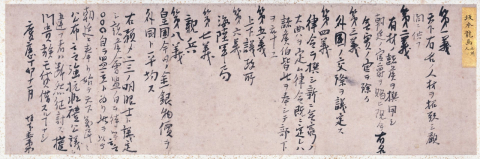 坂本龍馬
第一義
天下有名ノ人材ヲ招致シ顧
問ニ供フ
第二義
有材ノ諸侯ヲ撰用シ
朝廷ノ官爵ヲ賜ヒ現今有名
無実ノ官ヲ除ク
第三義
外国ノ交際ヲ議定ス
第四義
律令ヲ撰シ新ニ無窮ノ
大典ヲ定ム律令既ニ定レハ
諸侯伯皆此ヲ奉シテ部下
ヲ率ユ
第五義
上下議政所
第六義
海陸軍局
第七義
親兵
第八義
皇国今日ノ金銀物價ヲ
外国ト平均ス
右預メ二三ノ明眼士ト議定
シ諸侯會盟ノ日ヲ待ツテ云々
○○○自ラ盟主ト為リ此ヲ以テ
朝廷ニ奉リ始テ天下萬民ニ
公布云々強抗非禮公議ニ
違フ者ハ断然征討ス權
門貴族モ貸借スルコトナシ
慶應丁卯十一月 坂本直柔